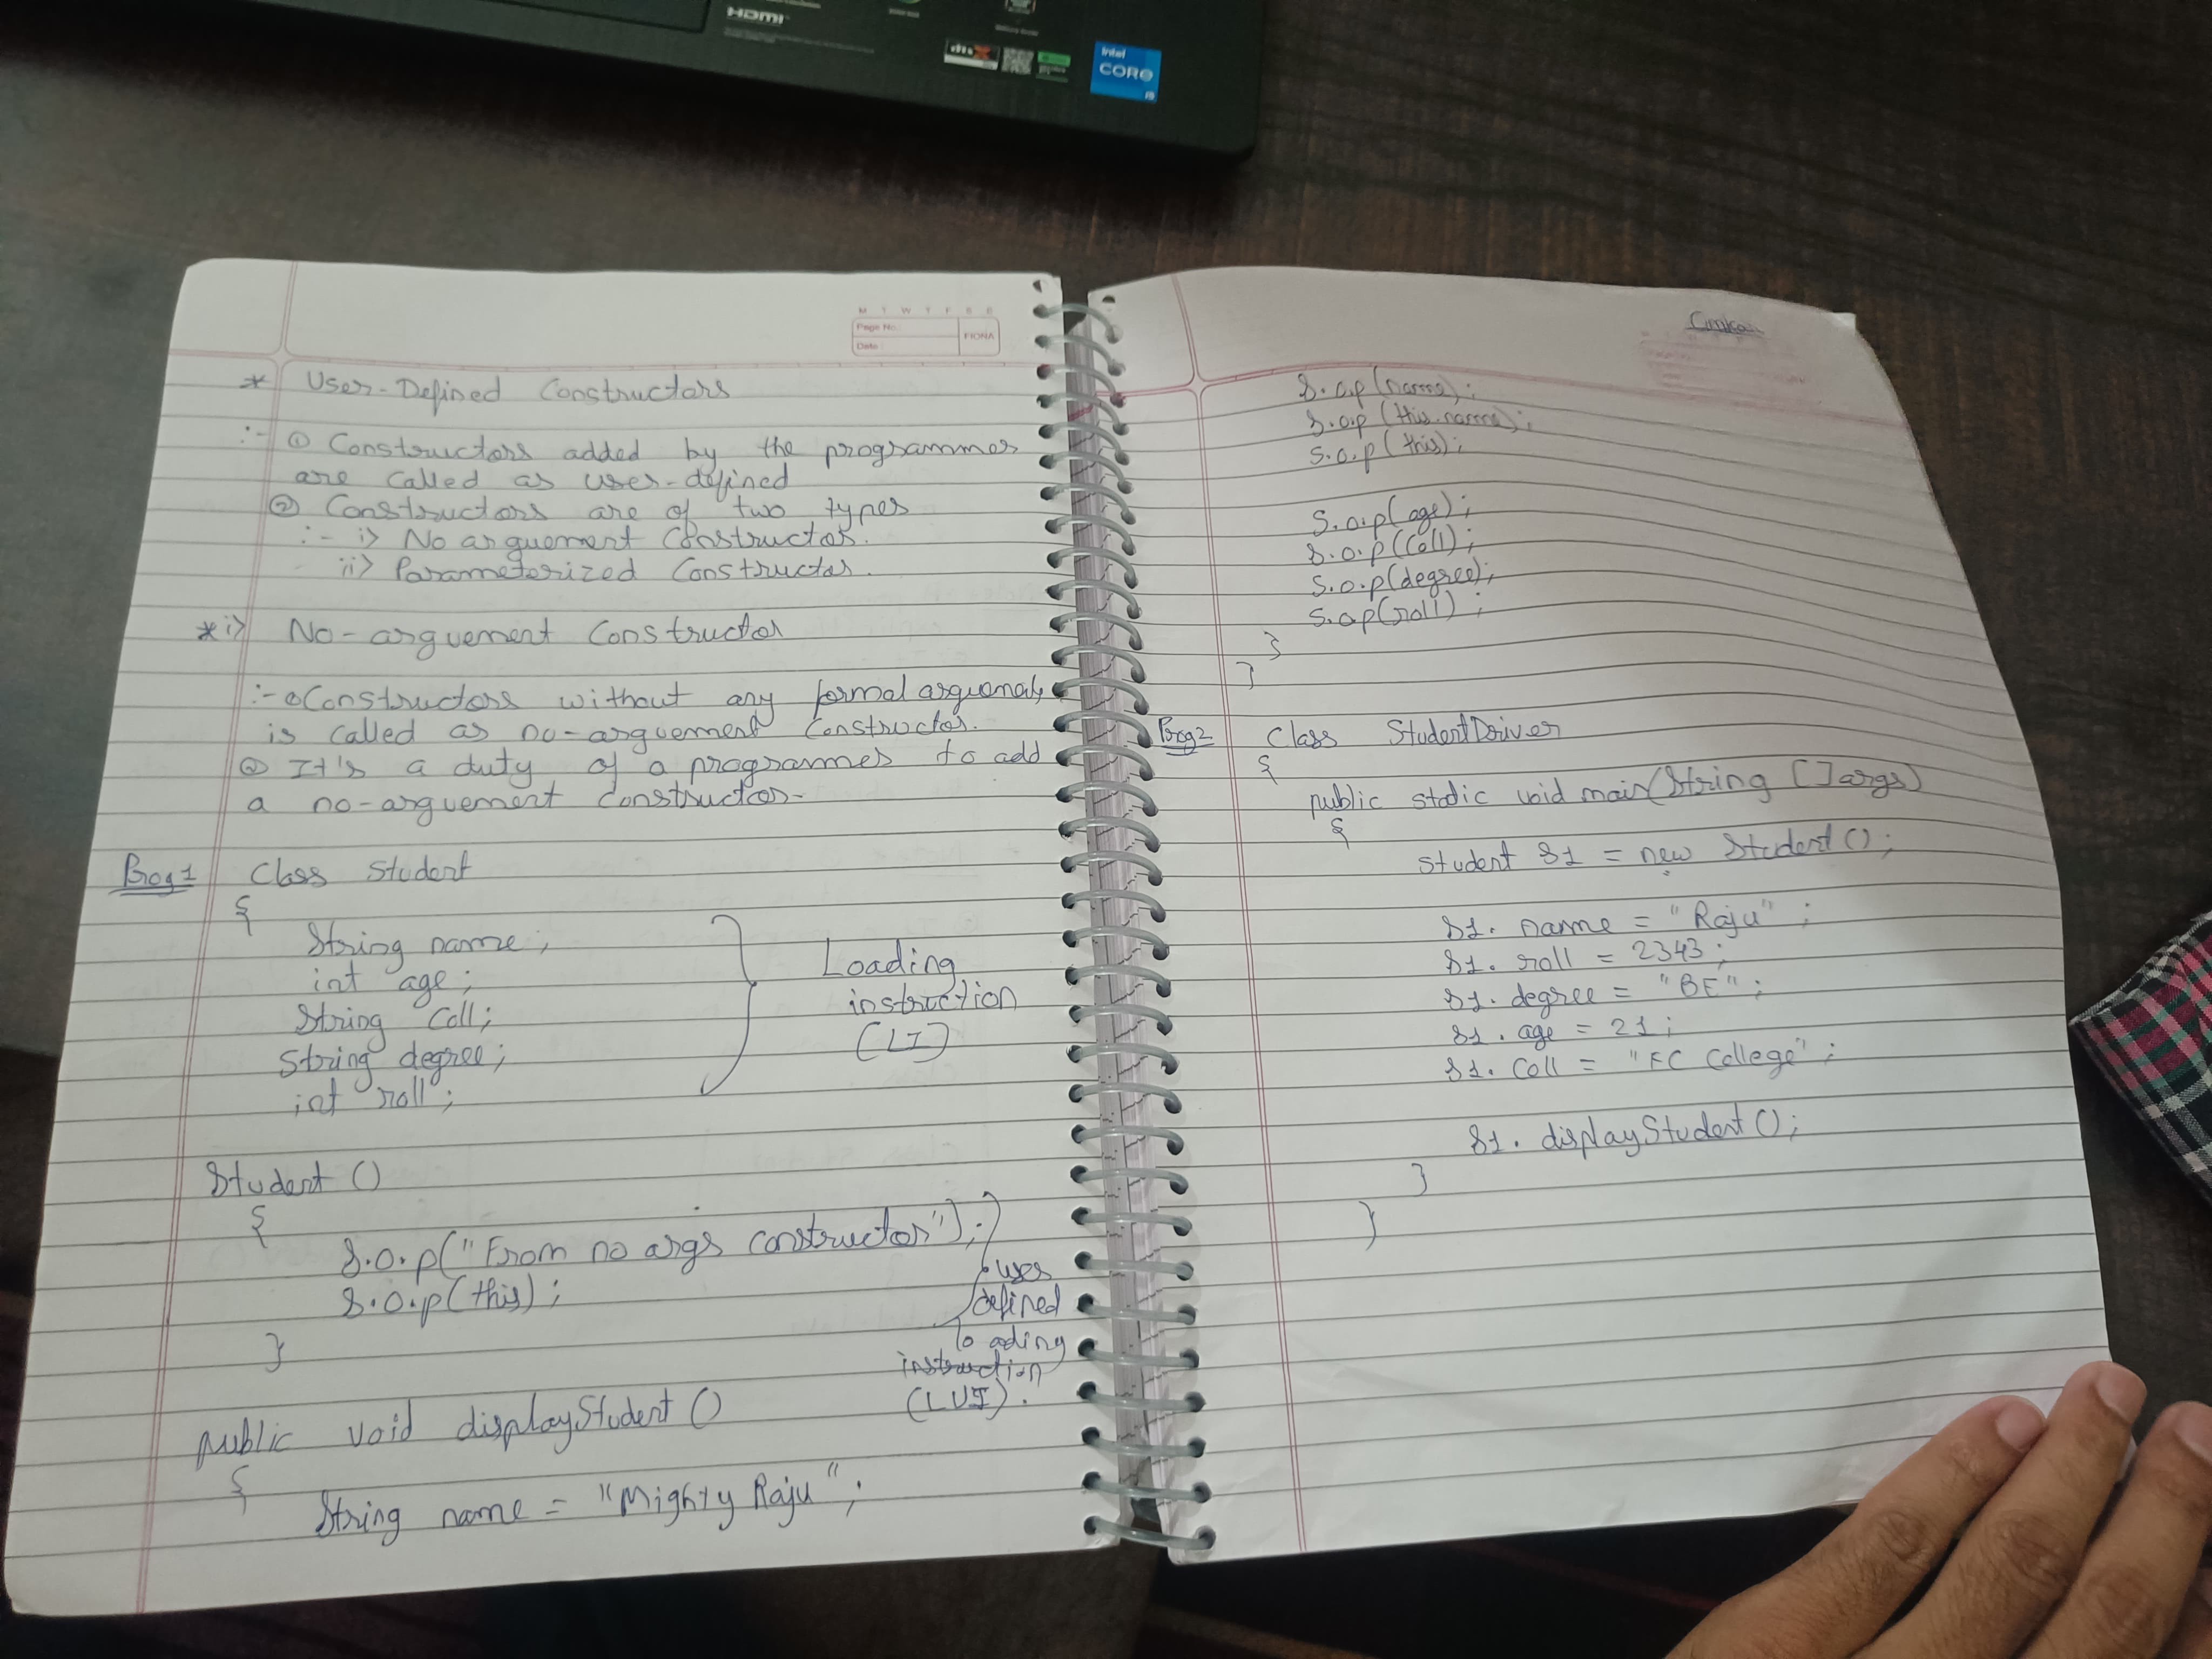 HDMI
intel
CORE
i5
M T W T F S S
Page No.:
Date:
FIONA
* User-Defined Constructors
:- ① Constructors added by the programmer
are called as user-defined
② Constructors are of two types
:- i> No arguement Constructor.
ii> Parameterized Constructor.
* i> No-arguement Constructor
:- ① Constructors without any formal arguements
is called as no-arguement Constructor.
② It's a duty of a programmer to add
a no-arguement Constructor.
Prog 1 Class Student
{
String name;
int age;
String Coll;
String degree;
int roll;
Loading
instruction
(LI)
Student ()
{
S.o.p("From no args constructor");
S.o.p(this);
}
user
defined
Loading
instruction
(LUI).
public void displayStudent ()
{
String name = "Mighty Raju";
S.o.p(name);
S.o.p(this.name);
S.o.p(this);
S.o.p(age);
S.o.p(Coll);
S.o.p(degree);
S.o.p(roll);
}
}
Prog 2 Class StudentDriver
{
public static void main(String []args)
{
Student S1 = new Student ();
S1. name = "Raju";
S1. roll = 2343;
S1. degree = "BE";
S1. age = 21;
S1. Coll = "FC College";
S1. displayStudent ();
}
}